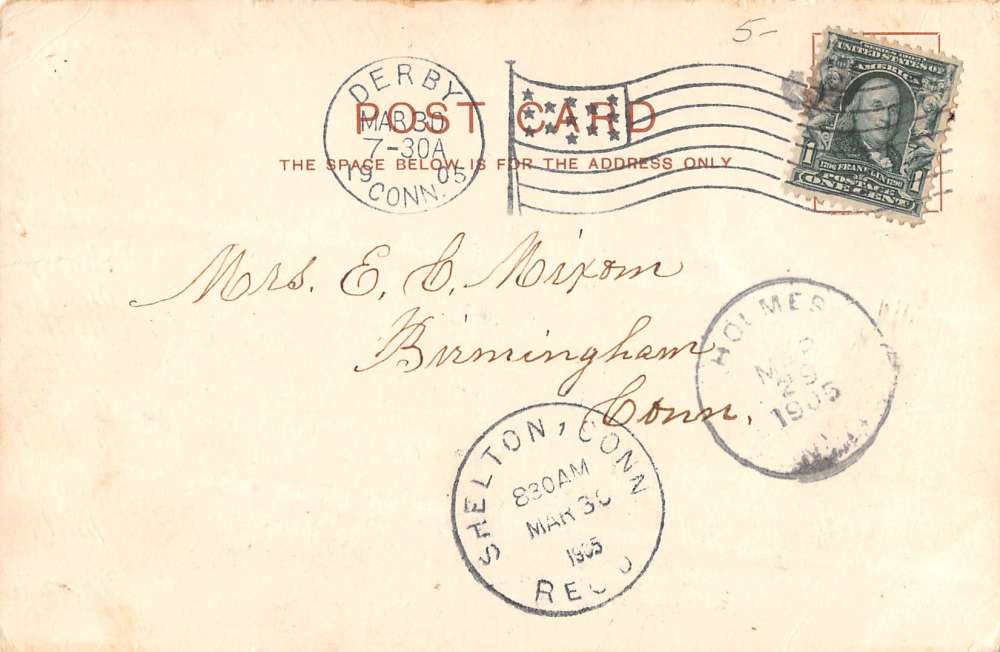 5-
DERBY
MAR 30
7-30A
19 05
CONN.
POST CARD
THE SPACE BELOW IS FOR THE ADDRESS ONLY
SERIES 1902
UNITED STATES OF
AMERICA
1706 FRANKLIN 1790
1 POSTAGE 1
ONE CENT
Mrs. E. C. Mixom
Birmingham
Conn.
HOLMES
29
1905
SHELTON, CONN
830AM
MAR 30
1905
REC'D